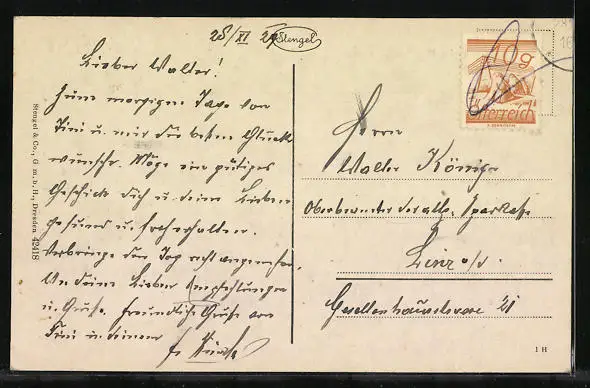 25/XI 29
Stengel
Lieber Walter!
Zum morgigen Tage von
Tini u. mir die besten Glück
wünsche. Möge ein gütiges
Geschick dich u. deine Lieben
gesund u. froh erhalten.
Verbringe den Tag recht angenehm.
deine Lieben Empfehlungen
u. Grüße. Freundliche Grüße von
Tini u. deinem
Stengel & Co., G. m. b. H., Dresden 42418
10g
Österreich
Herrn
Walter König
Oberbeamter der allg. Sparkasse
Linz a/d.
Gesellenhausstrasse 21
1 H